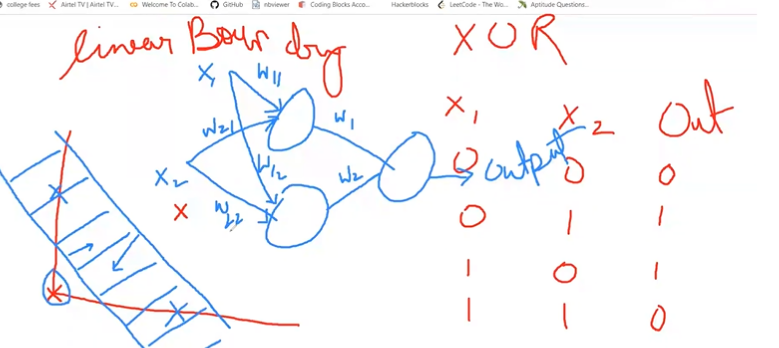 college fees Airtel TV | Airtel TV... Welcome To Colab... GitHub nbviewer Coding Blocks Acco... Hackerblocks LeetCode - The Wo... Aptitude Questions...
linear Boundry
XOR
X₁ W₁₁
X₁ X₂ Out
W₂₁ W₁
W₁₂ W₂ output
X₂
0 0 0
X W₂₂
0 1 1
1 0 1
1 1 0